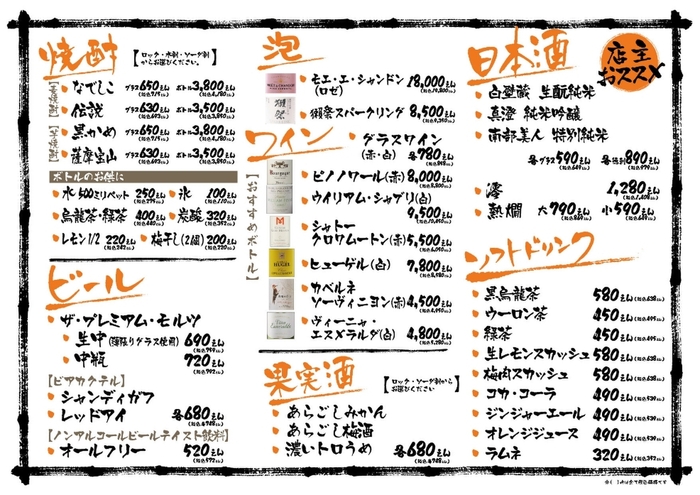 焼酎
【ロック・水割・ソーダ割からお選びください。】
【麦焼酎】
なでしこ グラス650えん ボトル3,800えん
伝説 グラス630えん ボトル3,500えん
【芋焼酎】
黒かめ グラス650えん ボトル3,800えん
薩摩宝山 グラス630えん ボトル3,500えん
ボトルのお供に
水500ミリペット 250えん
氷 100えん
烏龍茶・緑茶 400えん
炭酸 320えん
レモン1/2 220えん
梅干し(2個) 200えん
ビール
ザ・プレミアム・モルツ
生中(薄張りグラス使用) 690えん
中瓶 720えん
【ビアカクテル】
シャンディガフ
レッドアイ 各680えん
【ノンアルコールビールテイスト飲料】
オールフリー 520えん
(税込572えん)
泡
モエ・エ・シャンドン(ロゼ) 18,000えん
獺祭スパークリング 8,500えん
ワイン
グラスワイン
(赤・白) 各780えん
【おすすめボトル】
ピノノワール(赤) 8,000えん
ウイリアム・シャブリ(白)
9,500えん
シャトー
クロワムートン(赤) 5,500えん
ヒューゲル(白) 7,800えん
カベルネ
ソーヴィニヨン(赤) 4,500えん
ヴィーニャ・
エスメラルダ(白) 4,800えん
果実酒
【ロック・ソーダ割からお選びください】
あらごしみかん
あらごし梅酒
濃いトロうめ 各680えん
日本酒
店主おススメ
白壁蔵 生酛純米
真澄 純米吟醸
南部美人 特別純米
各グラス590えん 各徳利890えん
澪 1,280えん
熱燗 大790えん 小590えん
ソフトドリンク
黒烏龍茶 580えん(税込638えん)
ウーロン茶 450えん(税込495えん)
緑茶 450えん(税込495えん)
生レモンスカッシュ 580えん(税込638えん)
梅肉スカッシュ 580えん(税込638えん)
コカ・コーラ 490えん(税込539えん)
ジンジャーエール 490えん(税込539えん)
オレンジジュース 490えん(税込539えん)
ラムネ 320えん(税込352えん)